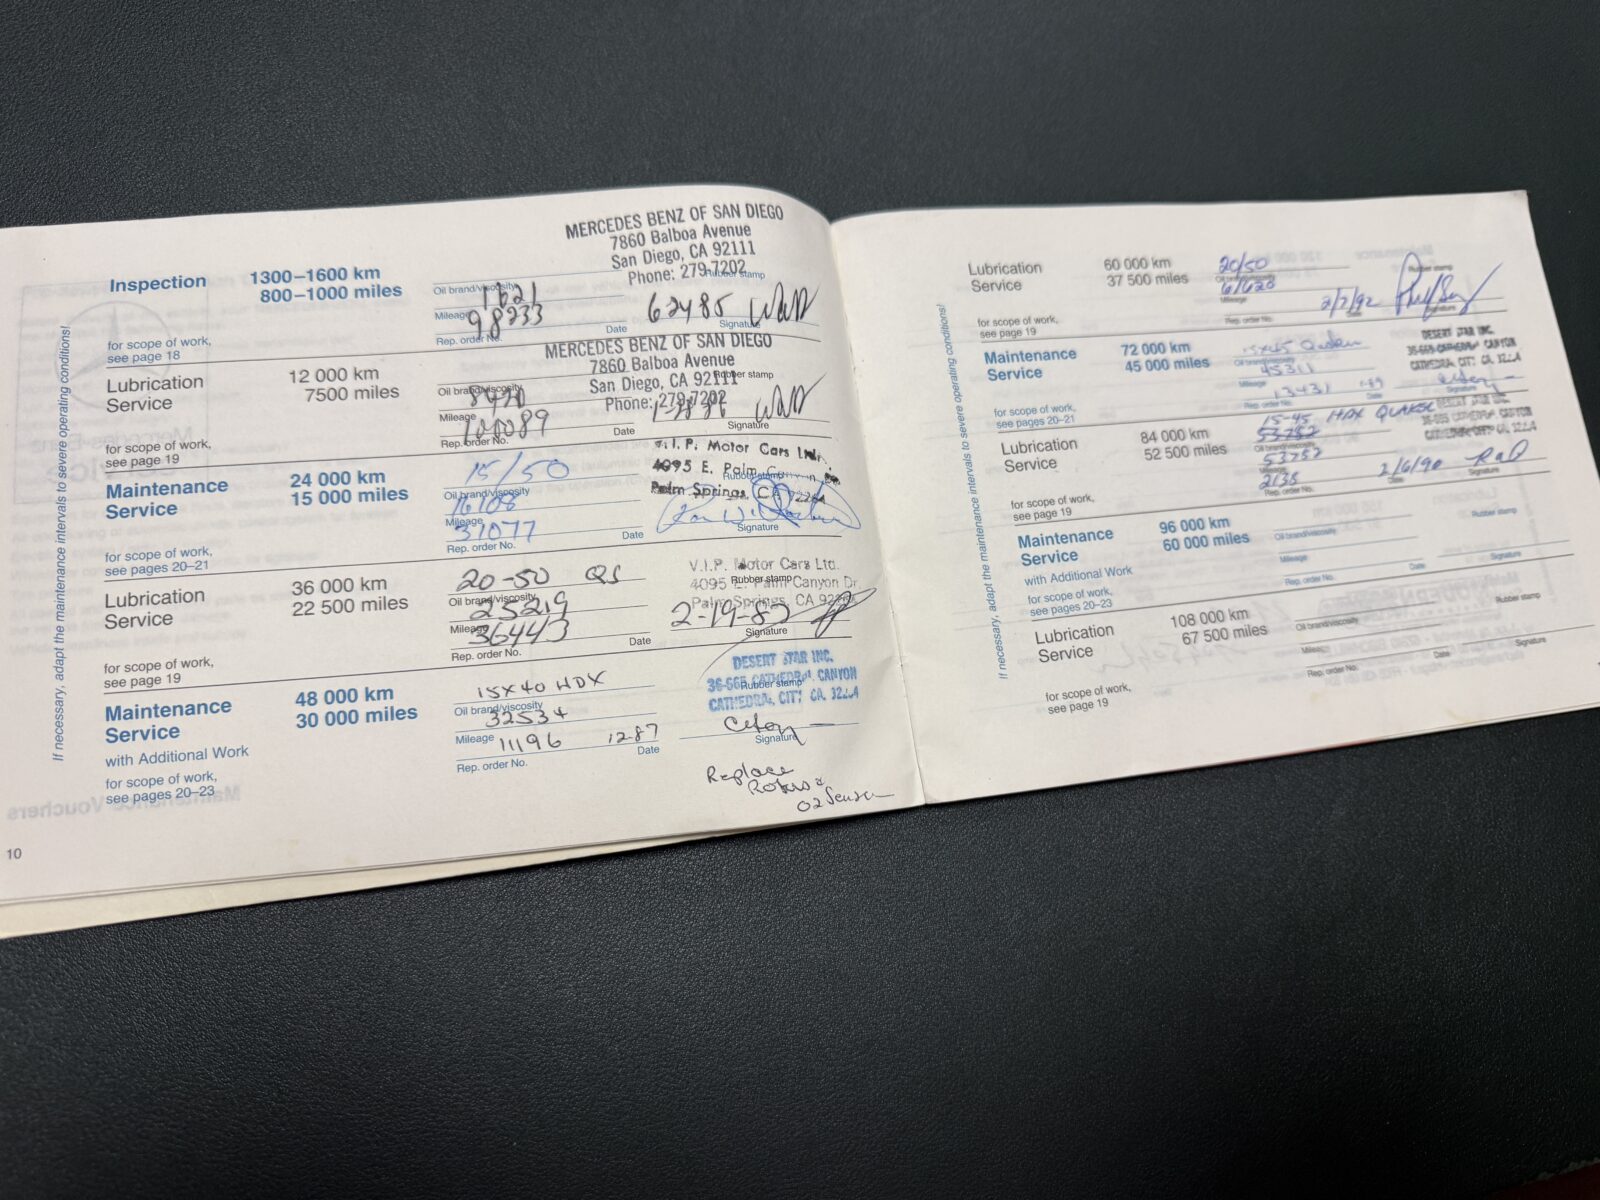 If necessary, adapt the maintenance intervals to severe operating conditions!
Inspection
1300–1600 km
800–1000 miles
for scope of work,
see page 18
Oil brand/viscosity
1621
Mileage
98233
Rep. order No.
Date
62485
Signature
MERCEDES BENZ OF SAN DIEGO
7860 Balboa Avenue
San Diego, CA 92111
Phone: 279-7202
Rubber stamp
Lubrication
Service
12 000 km
7500 miles
for scope of work,
see page 19
Oil brand/viscosity
Mileage
Rep. order No.
Date
MERCEDES BENZ OF SAN DIEGO
7860 Balboa Avenue
San Diego, CA 92111
Phone: 279-7202
Rubber stamp
Maintenance
Service
24 000 km
15 000 miles
for scope of work,
see pages 20–21
15/50
Oil brand/viscosity
16108
Mileage
31077
Rep. order No.
Date
V.I.P. Motor Cars Ltd.
4095 E. Palm
Palm Springs, CA
Rubber stamp
Signature
Lubrication
Service
36 000 km
22 500 miles
for scope of work,
see page 19
20-50 QS
Oil brand/viscosity
25219
Mileage
36443
Rep. order No.
Date
V.I.P. Motor Cars Ltd.
4095 E. Palm Canyon Dr.
Palm Springs, CA
Rubber stamp
2-19-87
Signature
Maintenance
Service
with Additional Work
for scope of work,
see pages 20–23
48 000 km
30 000 miles
15X40 HDX
Oil brand/viscosity
32534
Mileage
11196
12-87
Rep. order No.
Date
DESERT STAR INC.
36-665 CATHEDRAL CANYON
CATHEDRAL CITY CA.
Rubber stamp
Signature
Replace
Rotors &
O2 Sensor
10
If necessary, adapt the maintenance intervals to severe operating conditions!
Lubrication
Service
60 000 km
37 500 miles
for scope of work,
see page 19
20/50
Oil brand/viscosity
Mileage
Rep. order No.
2/7/92
Rubber stamp
Signature
Maintenance
Service
72 000 km
45 000 miles
for scope of work,
see pages 20–21
15X45 Quaker
Oil brand/viscosity
45311
Mileage
13431
1-89
Rep. order No.
Date
DESERT STAR INC.
36-665 CATHEDRAL CANYON
CATHEDRAL CITY CA.
Signature
Lubrication
Service
84 000 km
52 500 miles
for scope of work,
see page 19
15-45 HDX QUAKER
53252
Oil brand/viscosity
53252
2138
Rep. order No.
2/6/90
Date
DESERT STAR INC.
36-665 CATHEDRAL CANYON
CATHEDRAL CITY CA.
Signature
Maintenance
Service
with Additional Work
for scope of work,
see pages 20–23
96 000 km
60 000 miles
Oil brand/viscosity
Mileage
Rep. order No.
Date
Rubber stamp
Signature
Lubrication
Service
108 000 km
67 500 miles
for scope of work,
see page 19
Oil brand/viscosity
Mileage
Rep. order No.
Date
Rubber stamp
Signature